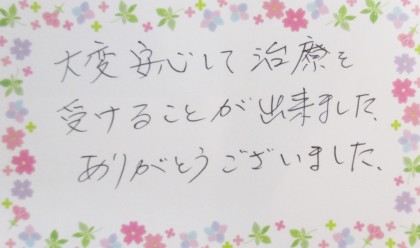 大変安心して治療を
受けることが出来ました、
ありがとうございました、